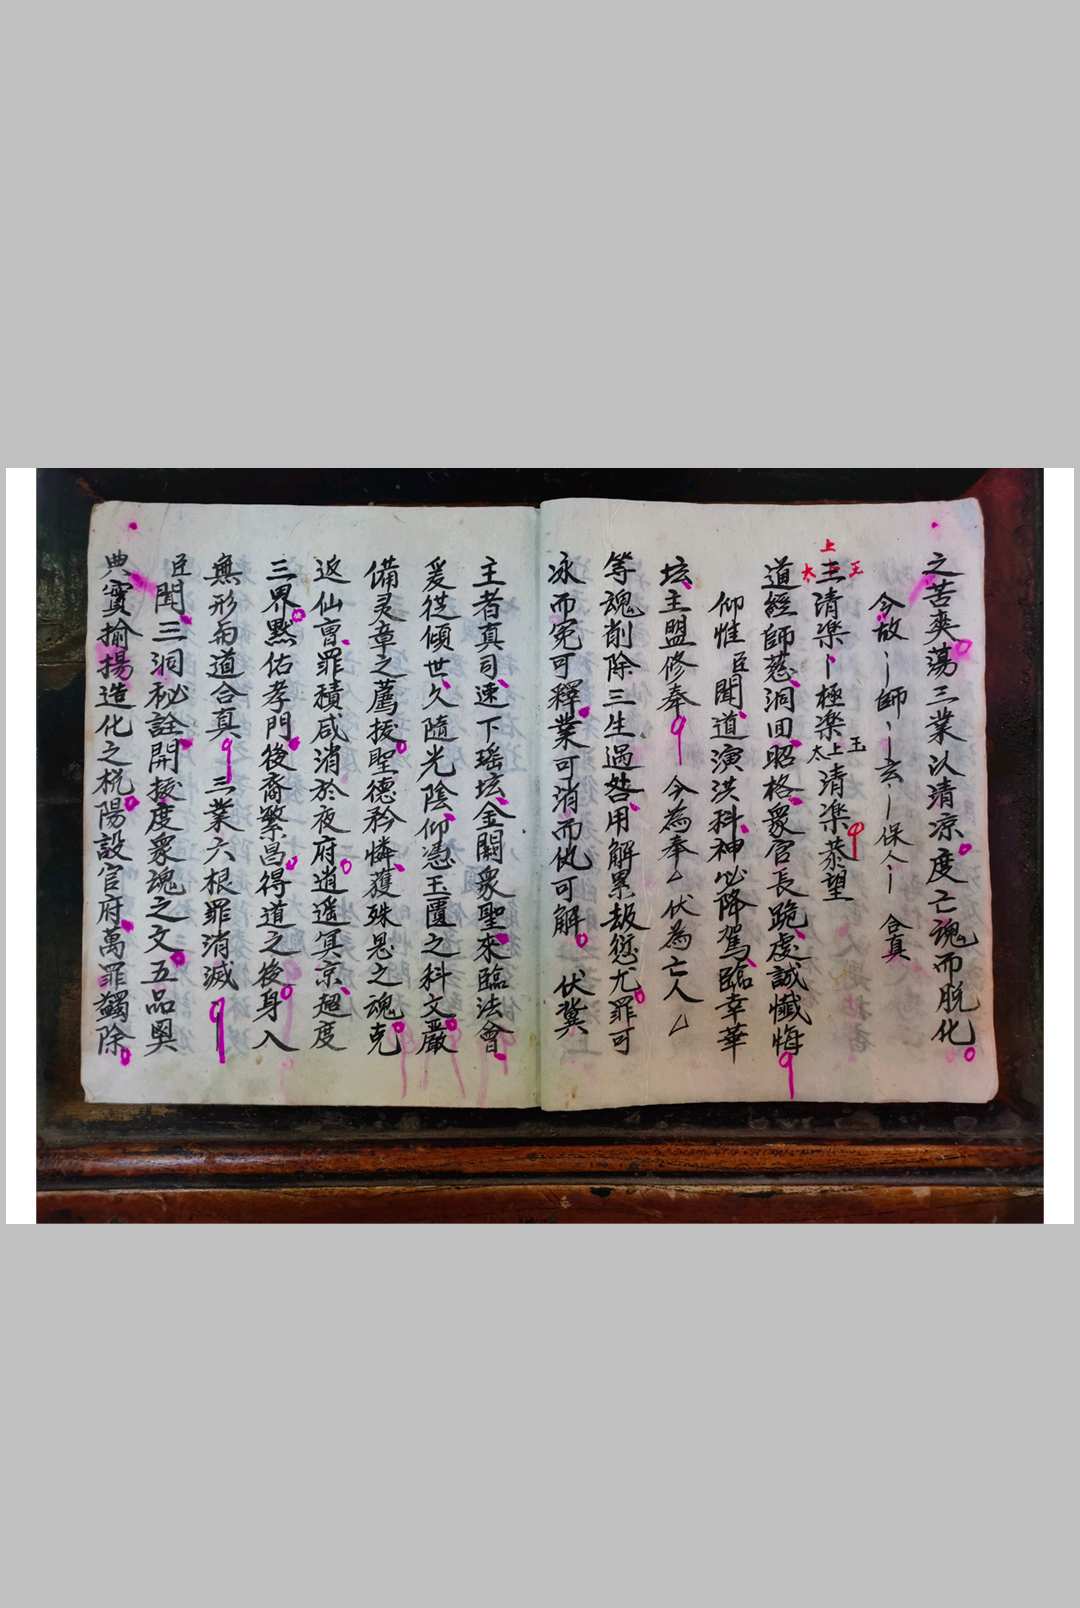 之苦爽蕩三業以清凉度亡魂而脱化
今故〻師〻玄〻保人〻 合真
上
太 三 玉
清凓〻極凓太上玉清凓恭望
道經師慈洞回昭格衆官長跪虔誠懺悔
仰惟臣聞道演洪科神必降駕臨幸華
坛主盟修奉 今為奉厶伏為亡人厶
等魂削除三生過咎用解累劫愆尤罪可
冰而冤可釋業可消而仇可解 伏冀
主者真司速下瑶坛金闕衆聖來臨法會
爰從傾世久隨光陰仰憑玉匱之科文嚴
備灵章之薦拔聖德矜憐獲殊恩之魂克
返仙曺罪積咸消於夜府逍遥冥京超度
三界黙佑孝門後裔繁昌得道之後身入
無形而道合真 三業六根罪消滅
臣聞三洞秘詮開拔度衆魂之文五品奥
典實揄揚造化之梲陽設官府萬罪蠲除